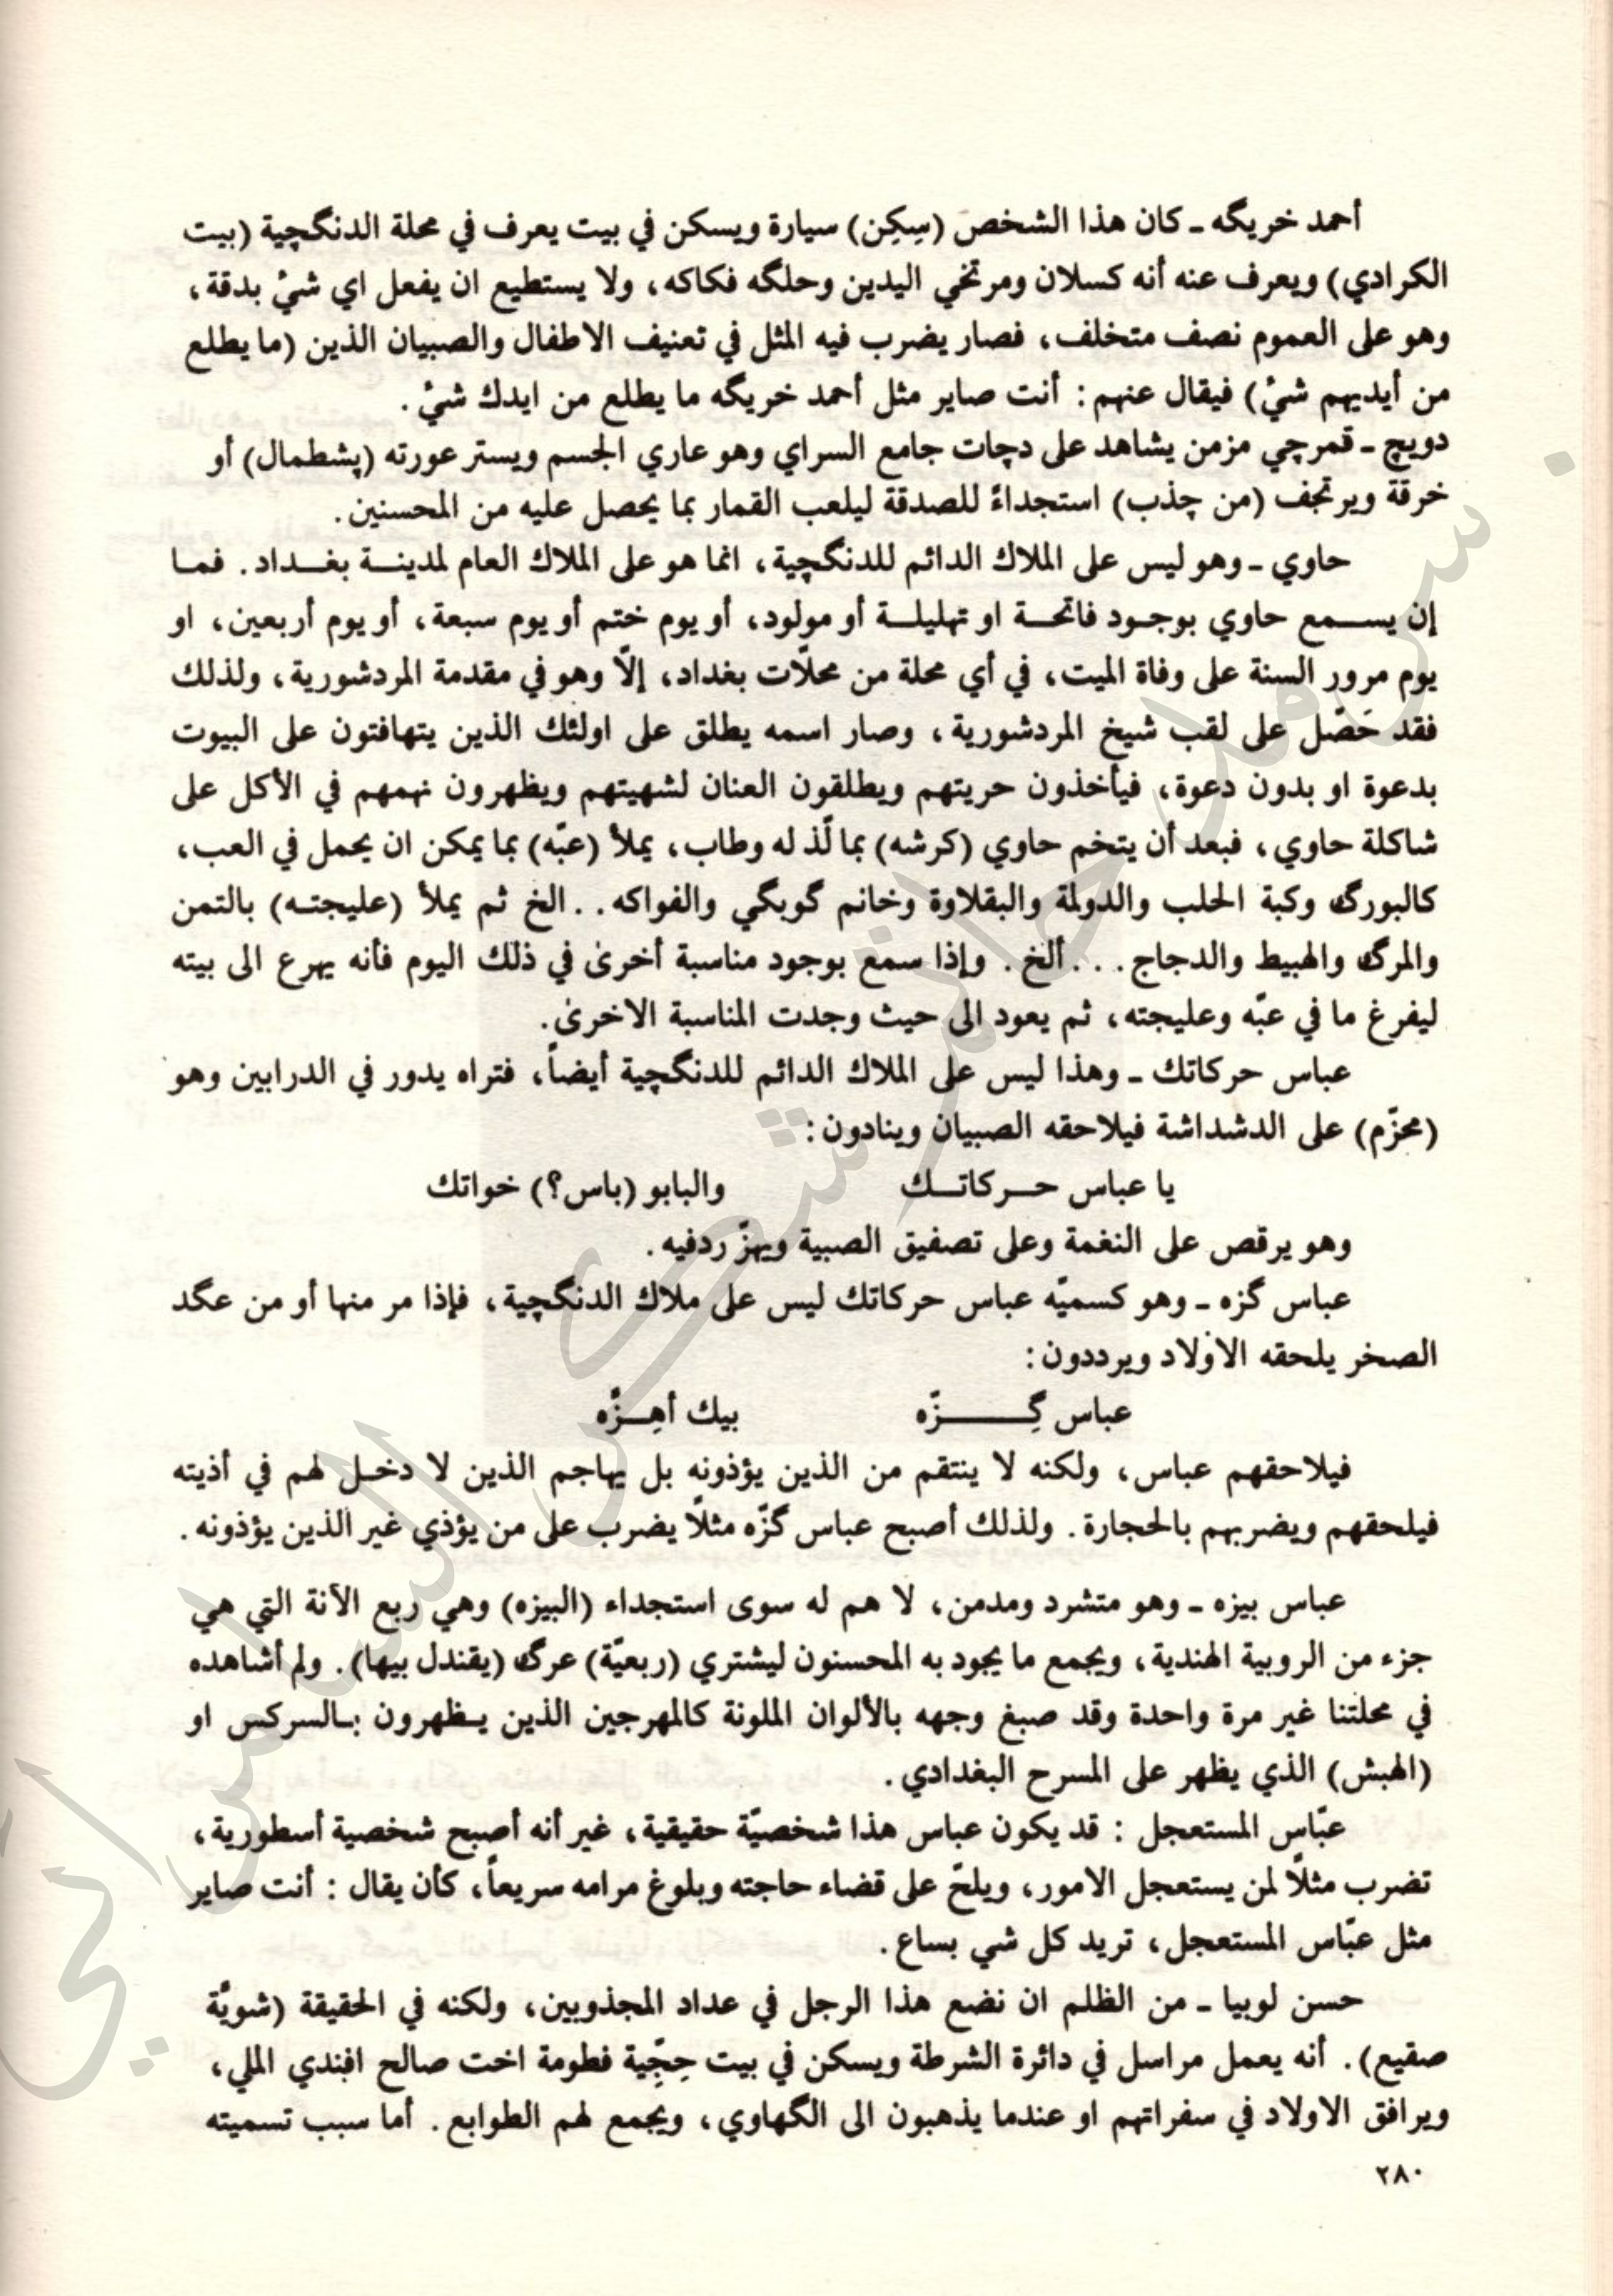 أحمد خريگه ـ كان هذا الشخص (سِكِن) سيارة ويسكن في بيت يعرف في محلة الدنگچية (بيت
الكرادي) ويعرف عنه أنه كسلان ومرتخي اليدين وحلگه فكاكه، ولا يستطيع ان يفعل اي شيْ بدقة،
وهو على العموم نصف متخلف، فصار يضرب فيه المثل في تعنيف الاطفال والصبيان الذين (ما يطلع
من أيديهم شيْ) فيقال عنهم: أنت صاير مثل أحمد خريگه ما يطلع من ايدك شيْ.
دويچ ـ قمرچي مزمن يشاهد على دچات جامع السراي وهو عاري الجسم ويستر عورته (پشطمال) أو
خرقة ويرتجف (من چذب) استجداءً للصدقة ليلعب القمار بما يحصل عليه من المحسنين.
حاوي ـ وهو ليس على الملاك الدائم للدنگچية، انما هو على الملاك العام لمدينة بغداد. فما
إن يسمع حاوي بوجود فاتحة او تهليلة أو مولود، أو يوم ختم أو يوم سبعة، أو يوم أربعين، او
يوم مرور السنة على وفاة الميت، في أي محلة من محلّات بغداد، إلّا وهو في مقدمة المردشورية، ولذلك
فقد حَصّل على لقب شيخ المردشورية، وصار اسمه يطلق على اولئك الذين يتهافتون على البيوت
بدعوة او بدون دعوة، فيأخذون حريتهم ويطلقون العنان لشهيتهم ويظهرون نهمهم في الأكل على
شاكلة حاوي، فبعد أن يتخم حاوي (كرشه) بما لّذ له وطاب، يملأ (عبّه) بما يمكن ان يحمل في العب،
كالبورگ وكبة الحلب والدولمة والبقلاوة وخانم گوبگي والفواكه. . الخ ثم يملأ (عليجته) بالتمن
والمرگ والهبيط والدجاج. . . ألخ. وإذا سمع بوجود مناسبة أخرى في ذلك اليوم فأنه يهرع الى بيته
ليفرغ ما في عبّه وعليجته، ثم يعود الى حيث وجدت المناسبة الاخرى.
عباس حركاتك ـ وهذا ليس على الملاك الدائم للدنگچية أيضاً، فتراه يدور في الدرابين وهو
(محزّم) على الدشداشة فيلاحقه الصبيان وينادون:
يا عباس حـركاتـك والبابو (باس؟) خواتك
وهو يرقص على النغمة وعلى تصفيق الصبية ويهزّ ردفيه.
عباس گزه ـ وهو كسميّه عباس حركاتك ليس على ملاك الدنگچية، فإذا مر منها أو من عگد
الصخر يلحقه الاولاد ويرددون:
عباس گِـــزّه بيك أهِـزّه
فيلاحقهم عباس، ولكنه لا ينتقم من الذين يؤذونه بل يهاجم الذين لا دخل لهم في أذيته
فيلحقهم ويضربهم بالحجارة. ولذلك أصبح عباس گزّه مثلاً يضرب على من يؤذي غير الذين يؤذونه.
عباس بيزه ـ وهو متشرد ومدمن، لا هم له سوى استجداء (البيزه) وهي ربع الآنة التي هي
جزء من الروبية الهندية، ويجمع ما يجود به المحسنون ليشتري (ربعيّة) عرگ (يقندل بيها). ولم أشاهده
في محلتنا غير مرة واحدة وقد صبغ وجهه بالألوان الملونة كالمهرجين الذين يـظهرون بـالسركس او
(الهبش) الذي يظهر على المسرح البغدادي.
عبّاس المستعجل : قد يكون عباس هذا شخصيّة حقيقية، غير أنه أصبح شخصية أسطورية،
تضرب مثلًا لمن يستعجل الامور، ويلحّ على قضاء حاجته وبلوغ مرامه سريعاً، كأن يقال : أنت صاير
مثل عبّاس المستعجل، تريد كل شي بساع.
حسن لوبيا ـ من الظلم ان نضع هذا الرجل في عداد المجذوبين، ولكنه في الحقيقة (شويّة
صقيع). أنه يعمل مراسل في دائرة الشرطة ويسكن في بيت حِجّية فطومة اخت صالح افندي الملي،
ويرافق الاولاد في سفراتهم او عندما يذهبون الى الگهاوي، ويجمع لهم الطوابع. أما سبب تسميته
٢٨٠